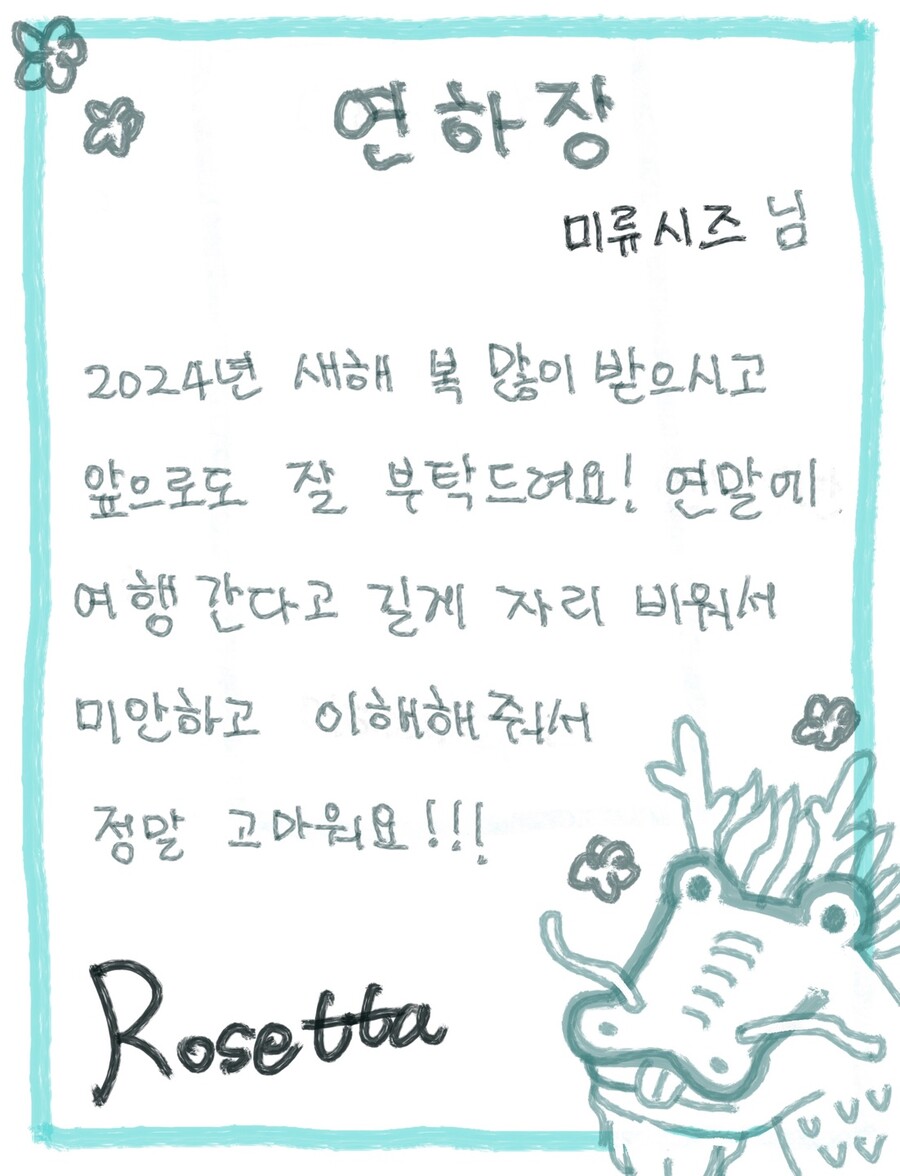 연하장
미류시즈 님
2024년 새해 복 많이 받으시고
앞으로도 잘 부탁드려요! 연말에
여행 간다고 길게 자리 비워서
미안하고 이해해줘서
정말 고마워요!!!
Rosetta